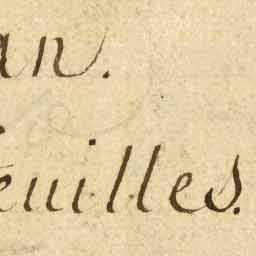 an.
feuilles.